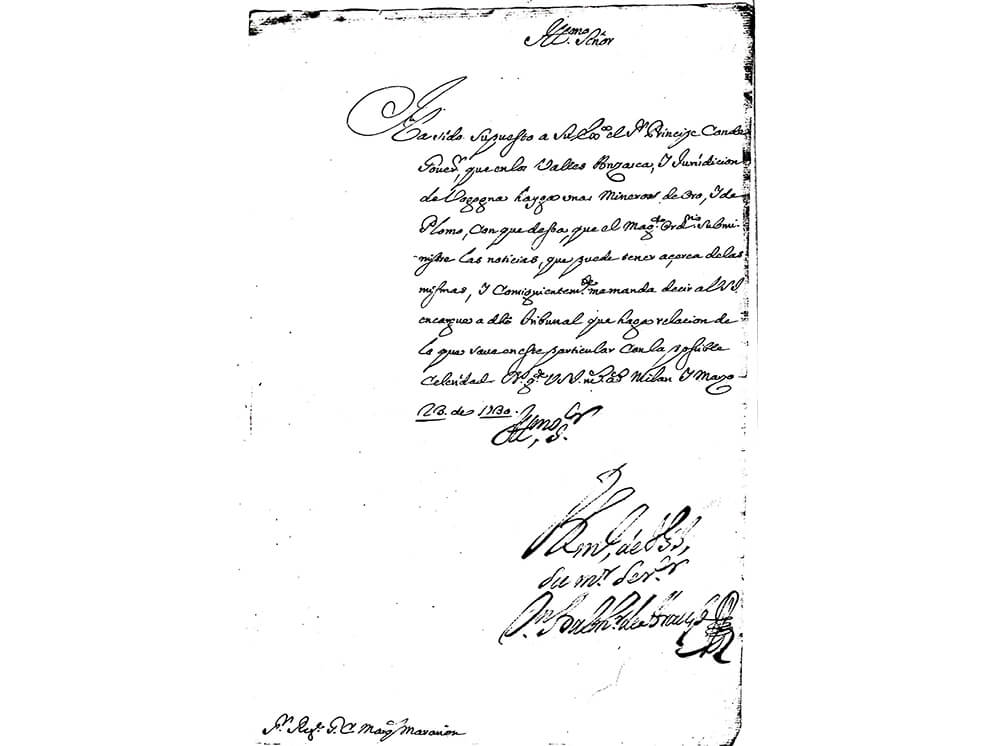 Illmo. Señor
Ha sido supuesto a Su Exª. el Sr. Principe Conde
Gouer, que en los Valles Anzasca, I Juridicion
de Vogogna haygo unas Mineras de oro, I de
Plomo, con que desea, que el Mag.do Ord.rio submi-
nistre las noticias, que puede tener açerca de las
mismas, I Consiguientem.te me manda decir a V.S.
encargue a dho tribunal que haga relacion de
lo que vaya en este particular con la posible
Celeridad D.s g.de V.S. m.s a.s Milan I Marzo
23. de 1730.
Illmo Sor, S.
B. l. m., de V.S.,
su mr. Serr.
Sr. Reg.te G. C. Marq. Marañon